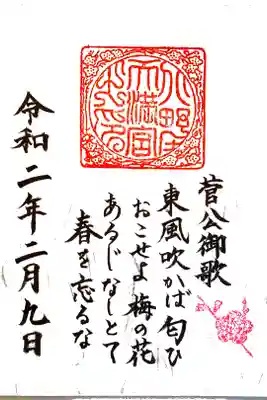 菅公御歌
東風吹かば匂ひ
おこせよ梅の花
あるじなしとて
春を忘るな
令和二年二月九日